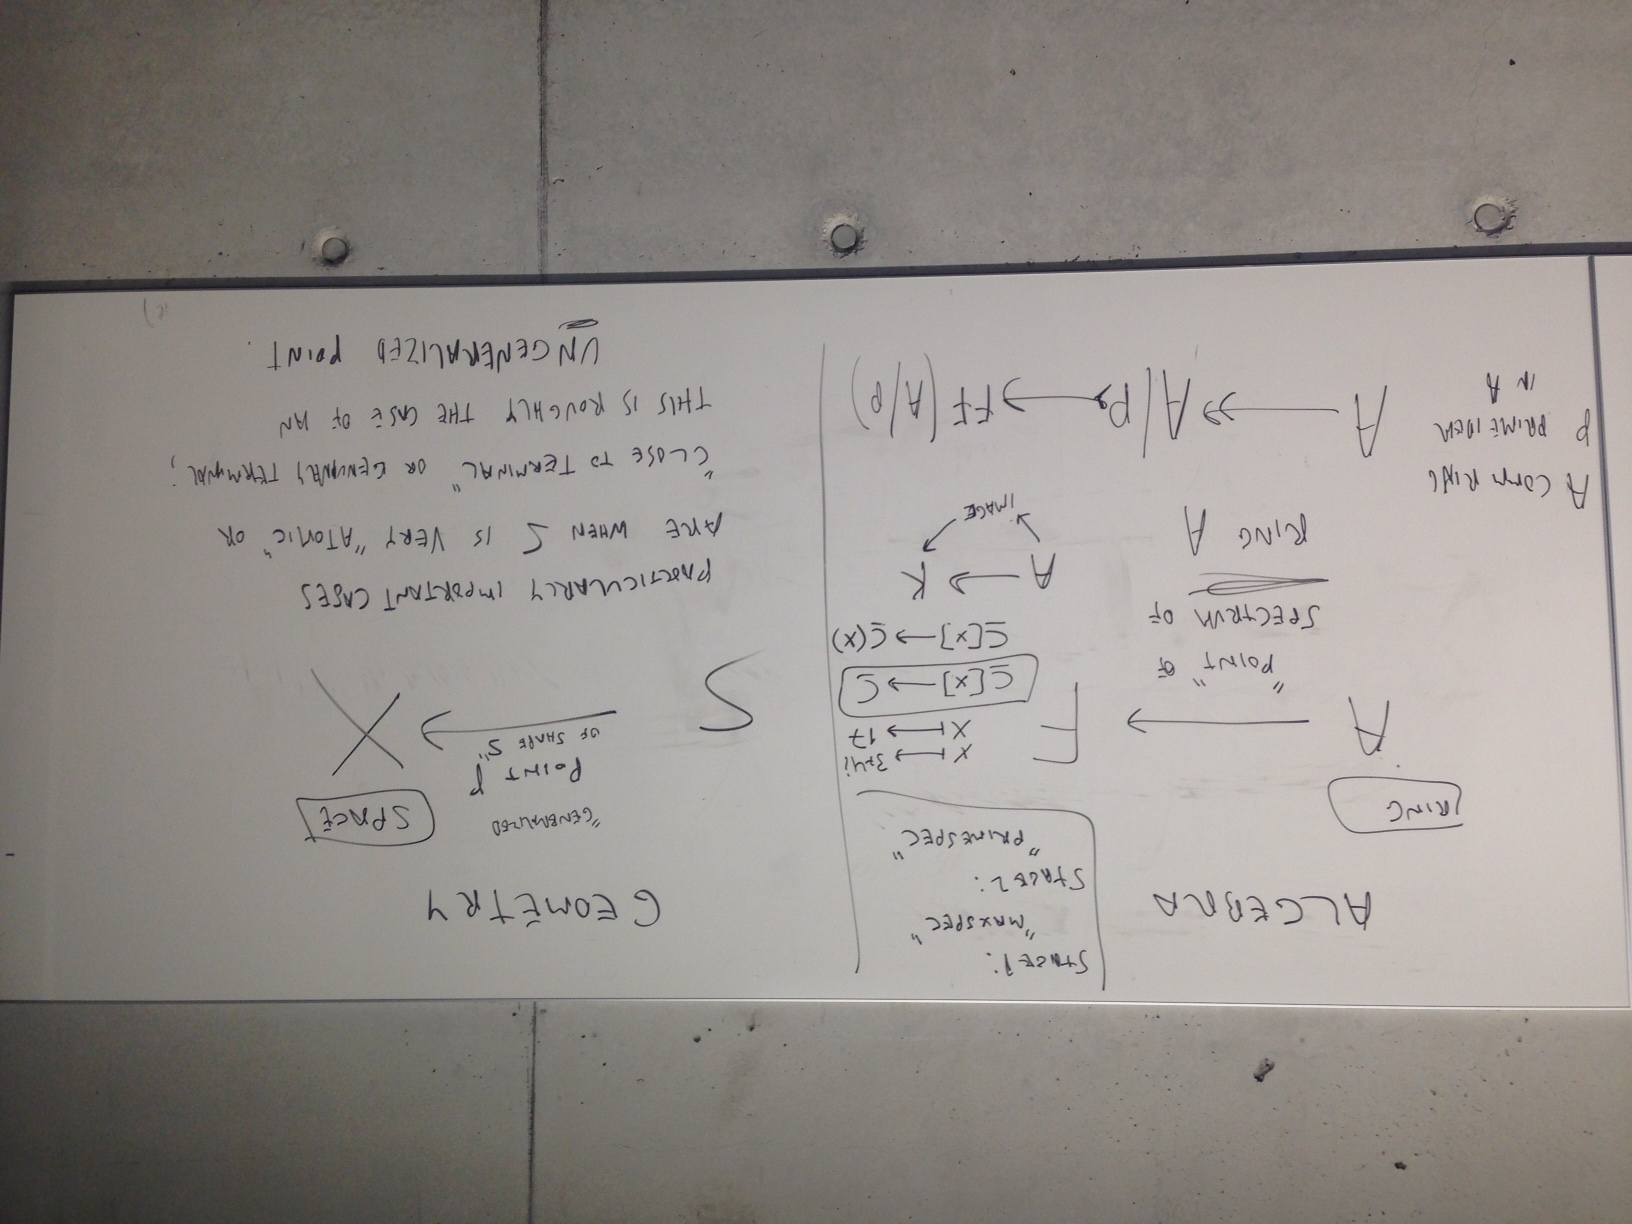 ALGEBRA
STAGE 1:
"MAXSPEC"
STAGE 2:
"PRIMESPEC"
RING
A ⟶ F
"POINT" OF
SPECTRUM OF
RING A
X ⟼ 3+4i
X ⟼ 17
C[x] ⟶ C
C[x] ⟶ C(x)
A ⟶ K
IMAGE
A COMM RING
P PRIME IDEAL
IN A
A ↠ A/P ↣ FF(A/P)
GEOMETRY
"GENERALIZED
POINT P
OF SHAPE S"
SPACE
S ⟶ X
PARTICULARLY IMPORTANT CASES
ARE WHEN S IS VERY "ATOMIC" OR
"CLOSE TO TERMINAL" OR GENUINELY TERMINAL;
THIS IS ROUGHLY THE CASE OF AN
UNGENERALIZED POINT.